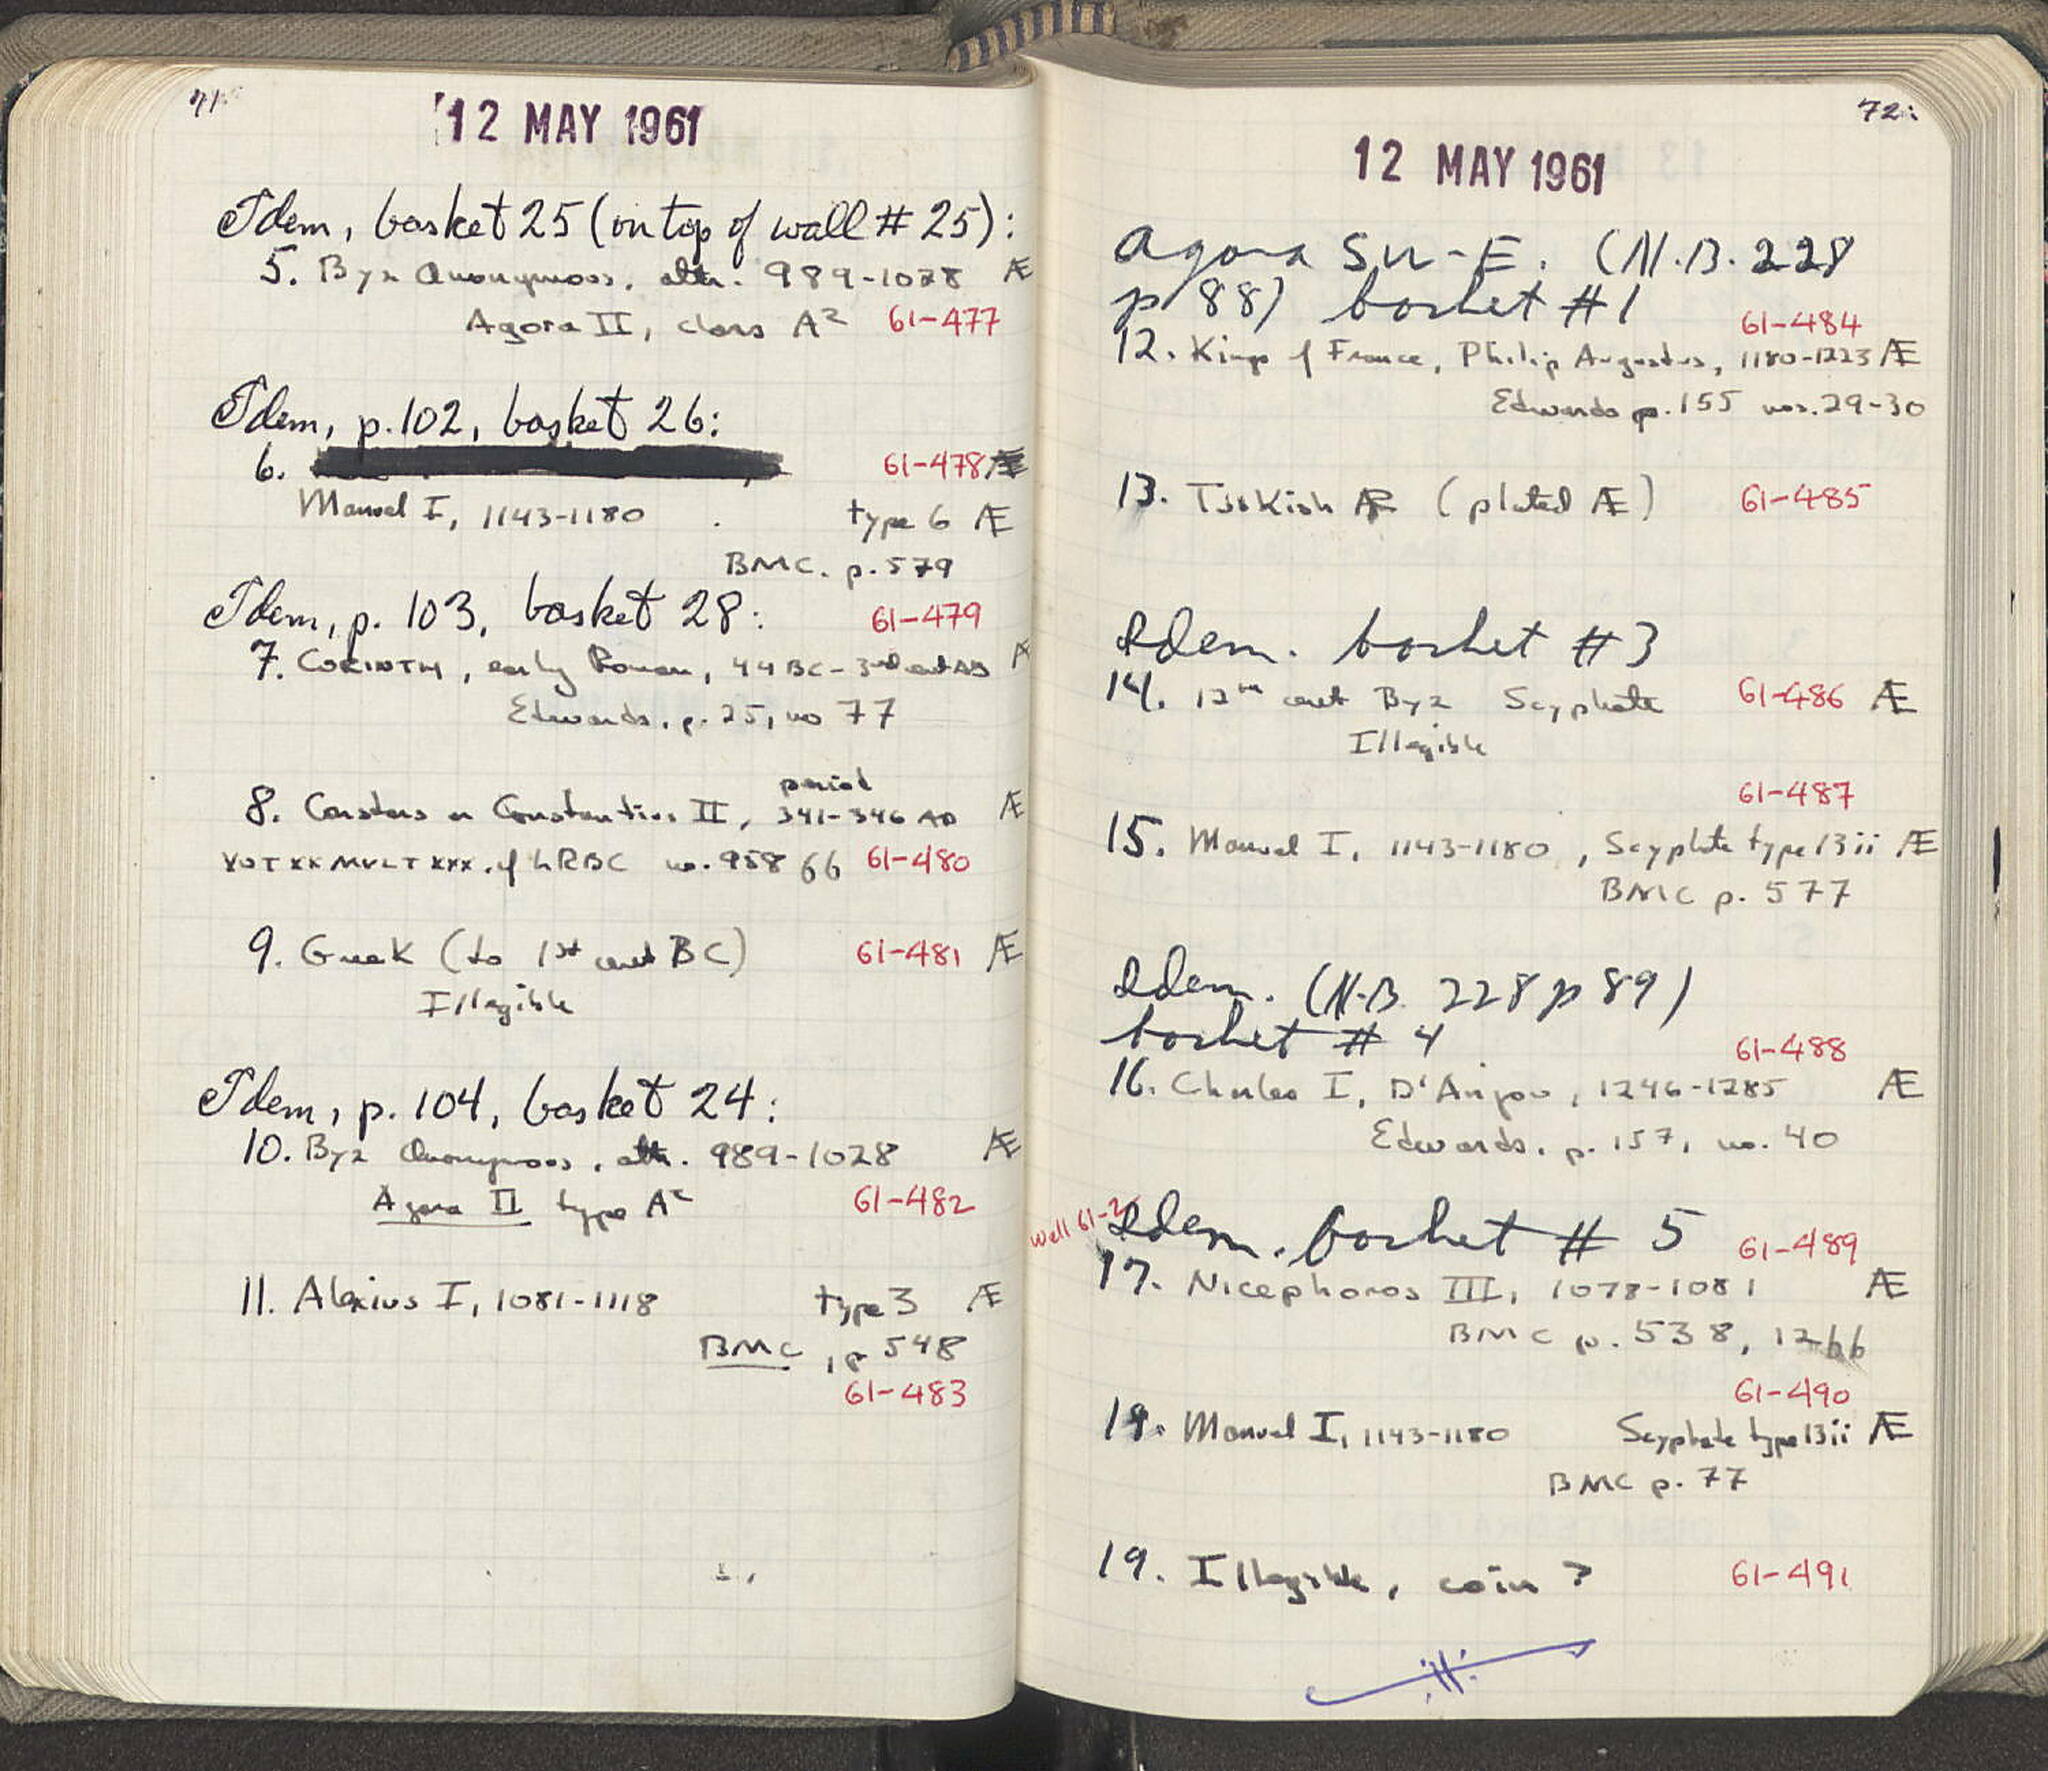 71
12 MAY 1961
Idem, basket 25 (on top of wall # 25):
5. Byz Anonymous, attr. 989-1028 Æ
Agora II, class A² 61-477
Idem, p. 102, basket 26:
6. 61-478
Manuel I, 1143-1180 type 6 Æ
BMC. p. 579
Idem, p. 103, basket 28: 61-479
7. CORINTH, early Roman, 44 BC - 3rd cent AD
Edwards, p. 25, no 77
period
8. Constans or Constantius II, 341-346 AD Æ
VOT XX MVLT XXX. cf LRBC no. 958 66 61-480
9. Greek (to 1st cent BC) 61-481 Æ
Illegible
Idem, p. 104, basket 24:
10. Byz Anonymous, attr. 989-1028 Æ
Agora II type A² 61-482
11. Alexius I, 1081-1118 type 3 Æ
BMC, p 548
61-483
72
12 MAY 1961
Agora S W-E. (N.B. 228
p 88) basket #1 61-484
12. Kings of France, Philip Augustus, 1180-1223 Æ
Edwards p. 155 nos. 29-30
13. Turkish AR (plated Æ) 61-485
Idem. basket #3
14. 12th cent Byz Scyphate 61-486 Æ
Illegible
61-487
15. Manuel I, 1143-1180, Scyphate type 13ii Æ
BMC p. 577
Idem. (N.B. 228 p 89)
basket # 4 61-488
16. Charles I, D'Anjou, 1246-1285 Æ
Edwards. p. 157, no. 40
Well 61-2 Idem. basket # 5 61-489
17. Nicephoros III, 1078-1081 Æ
BMC p. 538, 1266
61-490
18. Manuel I, 1143-1180 Scyphate type 13ii Æ
BMC p. 77
19. Illegible, coin? 61-491